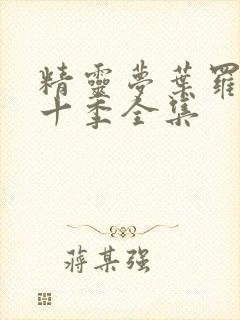 精靈夢葉羅
十季全集
蔣某强